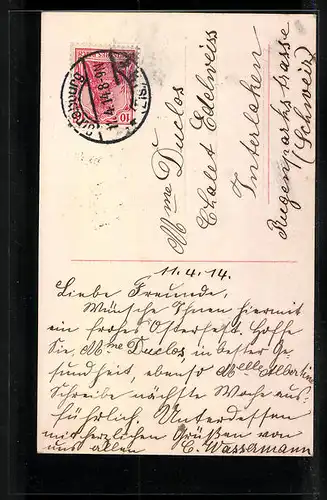 Mme Duclos
Chalet Edelweiss
Interlaken
Rugenparkstrasse
(Schweiz)
11.4.14.
Liebe Freunde,
Wünsche Ihnen hiermit
ein frohes Osterfest. Hoffe
Sie, Mme Duclos in bester Ge-
sundheit, ebenso Melle Albertine
Schreibe nächste Woche aus-
führlich. Unterdessen
mit herzlichen Grüßen von
uns allen C. Wassermann
10